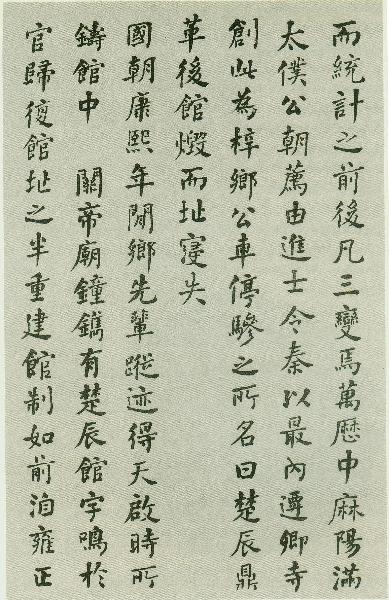 而統計之前後凡三變焉萬歷中麻陽滿
太僕公朝薦由進士令秦以最內遷卿寺
創此為梓鄉公車停驂之所名曰楚辰鼎
革後館燬而址寖失
國朝康熙年間鄉先輩蹤迹得天啟時所
鑄館中 關帝廟鐘鐫有楚辰館字鳴於
官歸復館址之半重建館制如前洎雍正